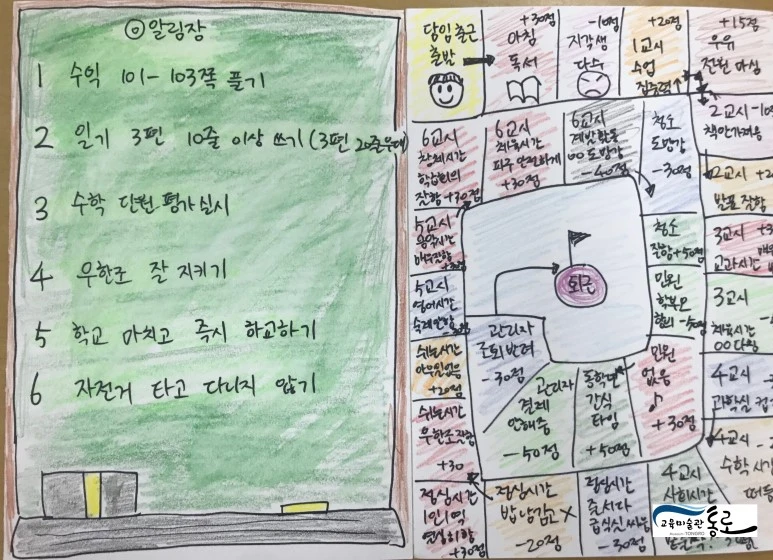 ◎ 알림장
1 수익 101-103쪽 풀기
2 일기 3편 10줄 이상 쓰기 (3편 20줄우대)
3 수학 단원평가 실시
4 우한조 잘 지키기
5 학교 마치고 즉시 하교하기
6 자전거 타고 다니지 않기
담임 출근
출발
+30점
아침
독서
-10점
지각생
다수
+20점
1교시
수업
집중력↑
+15점
우유
전원 마심
2교시 -10
책 안가져옴
2교시 +20
발표 잘함
3교시
교과시간
3교시
체육시간
OO 다침
4교시
과학실
4교시
수학시간
4교시
사회시간
점심시간
급식실
-30점
점심시간
밥 남김 X
-20점
점심시간
1인1역
+30점
쉬는시간
우한조
+30
쉬는시간
+20점
5교시
영어시간
5교시
음악시간
+30점
6교시
창체시간
학급회의
잘함 +30점
6교시
체육시간
피구 안전하게
+30점
6교시
계발활동
OO 도망감
-40점
청소
도망감
-30점
청소
잘함 +50점
민원
학부모
-50점
민원
없음
♪
+30점
동학년
간식
타임
+50점
관리자
결제
안해줌
-50점
관리자
조퇴 반려
-30점
퇴근
교육미술관
통로